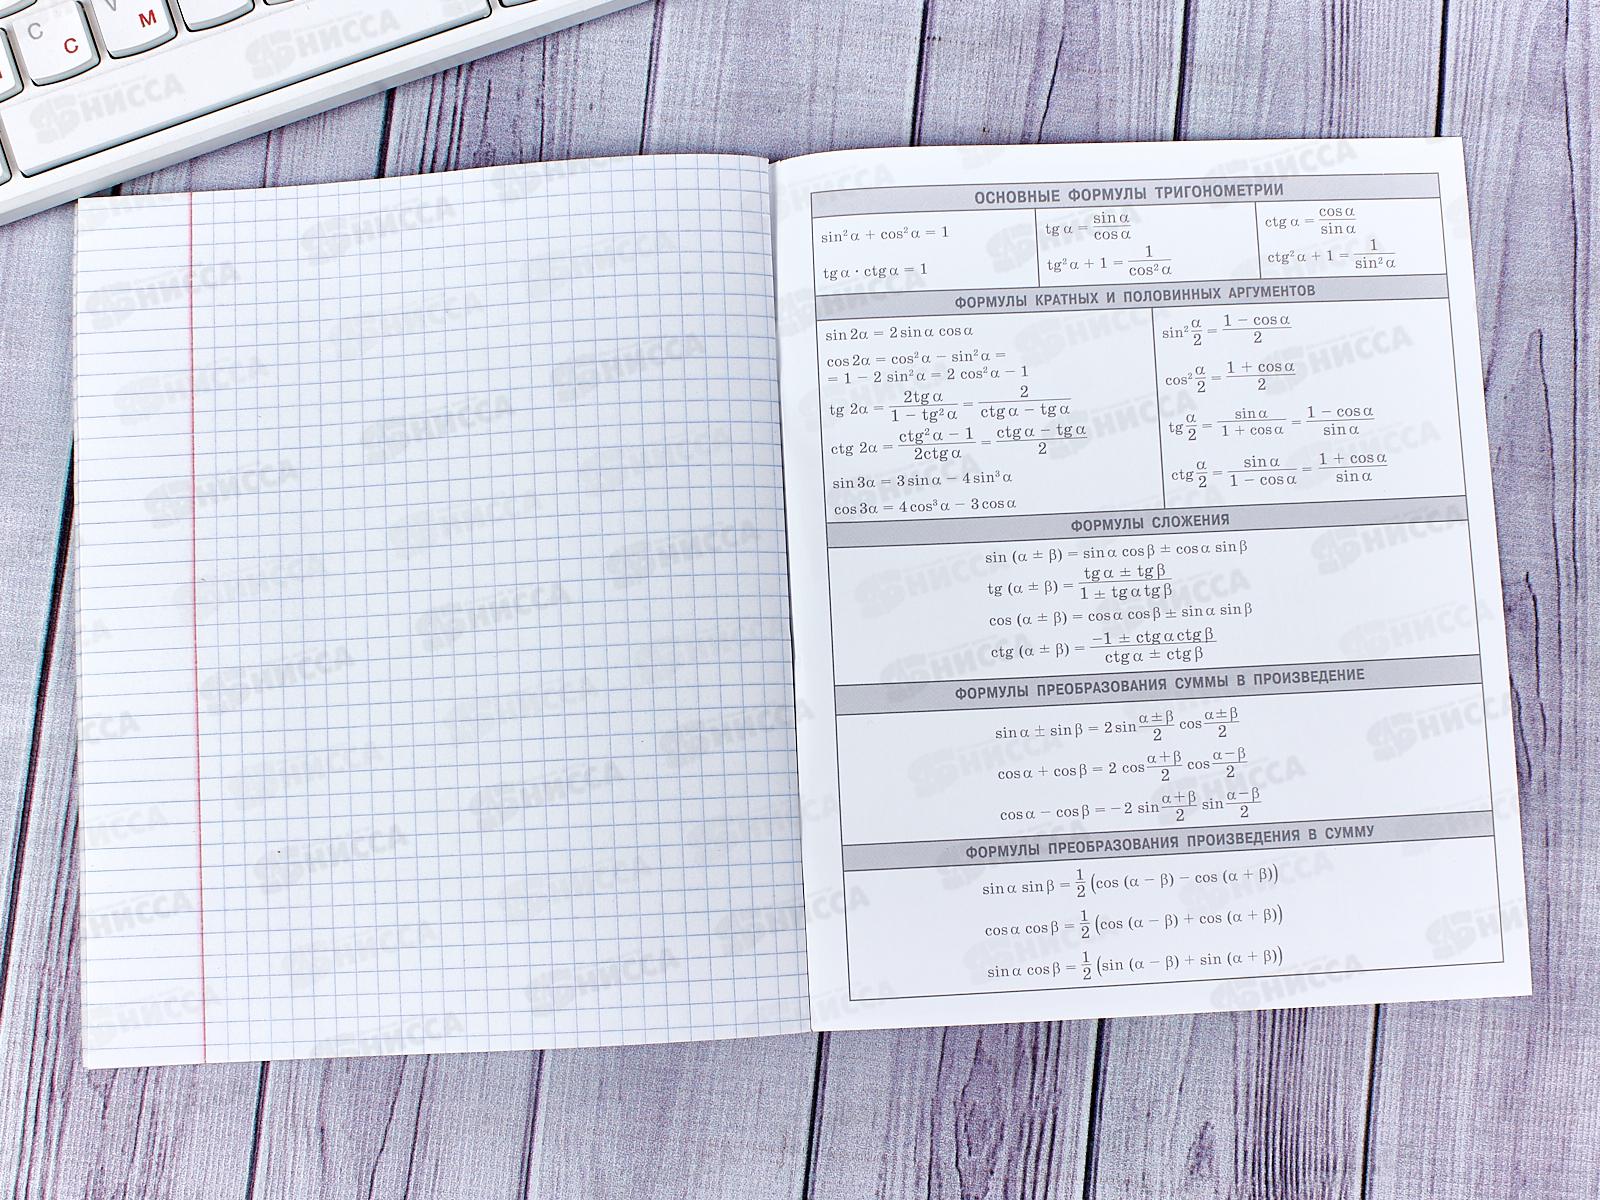 С С М
НИССА
ОСНОВНЫЕ ФОРМУЛЫ ТРИГОНОМЕТРИИ
sin²α + cos²α = 1
tg α · ctg α = 1
tg α = sin α / cos α
tg²α + 1 = 1 / cos²α
ctg α = cos α / sin α
ctg²α + 1 = 1 / sin²α
ФОРМУЛЫ КРАТНЫХ И ПОЛОВИННЫХ АРГУМЕНТОВ
sin 2α = 2 sin α cos α
cos 2α = cos²α − sin²α =
= 1 − 2 sin²α = 2 cos²α − 1
tg 2α = 2tg α / (1 − tg²α) = 2 / (ctg α − tg α)
ctg 2α = (ctg²α − 1) / 2ctg α = (ctg α − tg α) / 2
sin 3α = 3 sin α − 4 sin³α
cos 3α = 4 cos³α − 3 cos α
sin² α/2 = (1 − cos α) / 2
cos² α/2 = (1 + cos α) / 2
tg α/2 = sin α / (1 + cos α) = (1 − cos α) / sin α
ctg α/2 = sin α / (1 − cos α) = (1 + cos α) / sin α
ФОРМУЛЫ СЛОЖЕНИЯ
sin (α ± β) = sin α cos β ± cos α sin β
tg (α ± β) = (tg α ± tg β) / (1 ± tg α tg β)
cos (α ± β) = cos α cos β ± sin α sin β
ctg (α ± β) = (−1 ± ctg α ctg β) / (ctg α ± ctg β)
ФОРМУЛЫ ПРЕОБРАЗОВАНИЯ СУММЫ В ПРОИЗВЕДЕНИЕ
sin α ± sin β = 2 sin (α±β)/2 cos (α±β)/2
cos α + cos β = 2 cos (α+β)/2 cos (α−β)/2
cos α − cos β = −2 sin (α+β)/2 sin (α−β)/2
ФОРМУЛЫ ПРЕОБРАЗОВАНИЯ ПРОИЗВЕДЕНИЯ В СУММУ
sin α sin β = 1/2 (cos (α − β) − cos (α + β))
cos α cos β = 1/2 (cos (α − β) + cos (α + β))
sin α cos β = 1/2 (sin (α − β) + sin (α + β))